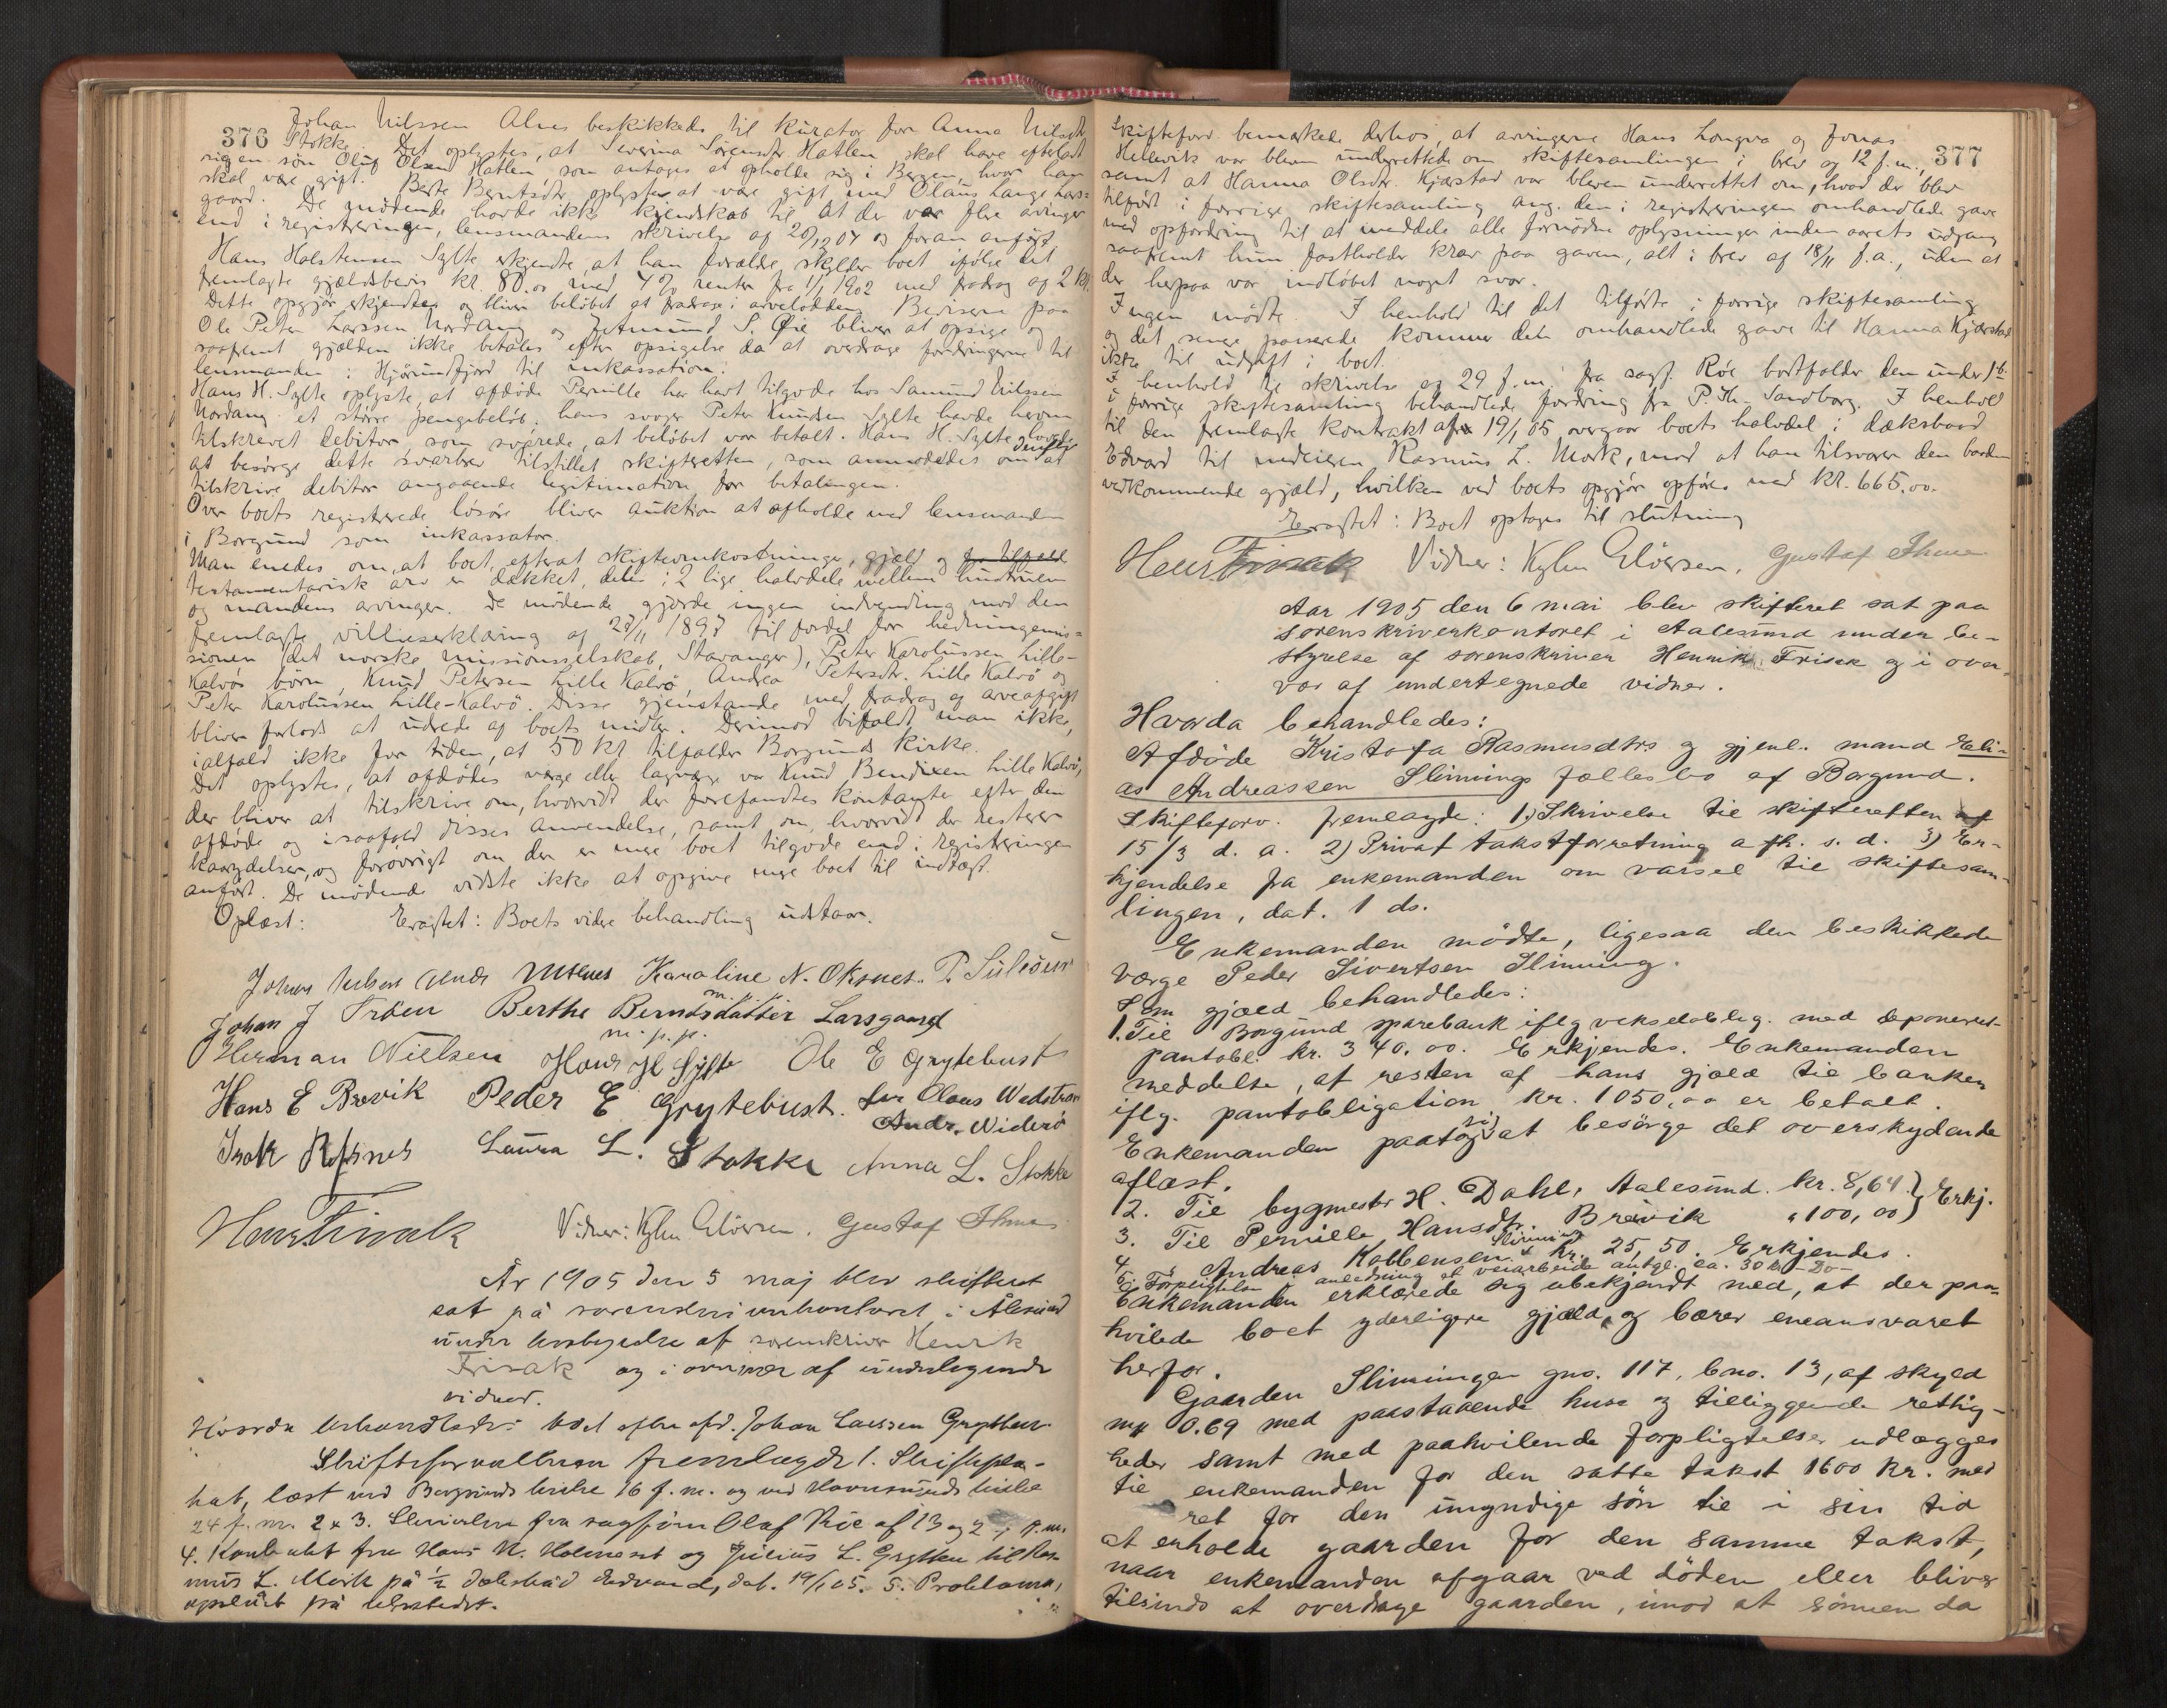 376
Johan Nilssen Alnes beskikkedes til kurator for Anna Nilsdtr.
Stokke. Det oplystes, at Severina Sørensdtr. Hatlen skal have efterladt
sig en søn Oluf Olsen Hatlen, som antages at opholde sig i Bergen, hvor han
skal være gift. Berte Berntsdtr. oplystes at være gift med Olaus Lange Lars-
gaard. De mødende havde ikke kjendskab til at der var flere arvinger
end i registreringen, lensmandens skrivelse af 20/12 04 og foran anført.
Hans Holstensen Sylte erkjendte, at han forældre skylder boet ifølge det
fremlagte gjældsbevis kr. 80.00 med 4% renter fra 1/1 1902 med fradrag af 2 kr.
Dette opgjør erkjendtes og bliver beløbet at fradrage i arvelodden. Beviserne paa
Ole Peter Larssen Nordang og Amund S. Øie bliver at opsige og
saafremt gjælden ikke betales efter opsigelse da at overdrage fordringerne til
lensmanden i Hjørundfjord til inkassation.
Hans H. Sylte oplyste, at afdøde Pernille har havt tilgode hos Samund Nilssen
Nordang et større pengebeløb; hans svoger Peter Knudsen Sylte havde herom
tilskrevet debitor som svarede, at beløbet var betalt. Hans H. Sylte lovede
at besørge dette svarbrev tilstillet skifteretten, som anmodedes om derefter at
tilskrive debitor angaaende legitimation for betalingen.
Over boets registrerede løsøre bliver auktion at afholde med lensmanden
i Borgund som inkassator.
Man enedes om, at boet, efterat skifteomkostninger, gjæld og
testamentarisk arv er dækket, deles i 2 lige halvdele mellem hustruens
og mandens arvinger. De mødende gjorde ingen indvending mod den
fremlagte villieserklæring af 28/11 1897 til fordel for hedningemis-
sionen (det norske missionsselskab, Stavanger), Peter Karolussen Lille-
Kalvøs børn, Knud Petersen Lille Kalvø, Andrea Petersdtr. Lille Kalvø og
Peter Karolussen Lille-Kalvø. Disse gjenstande med fradrag af arveafgift
bliver forlods at udrede af boets midler. Derimod bifaldt man ikke,
ialfald ikke for tiden, at 50 kr tilfalder Borgunds kirke.
Det oplystes, at afdødes værge eller lagværge var Knud Bendixen Lille Kalvø,
der bliver at tilskrive om, hvorvidt der forefandtes kontanter efter den
afdøde og isaafald disses anvendelse, samt om, hvorvidt der resterer
kaarydelser, og forøvrigt om der er mere boet tilgode end i registreringen
anført. De mødende vidste ikke at opgive mere boet til indtægt.
Oplæst: Eragtet: Boets videre behandling udstaar.
Johan Nilsen Alnes Karaline N. Oksnes. P. Suløen
m. p. p.
Johan J Trøen Berthe Berntsdatter Larsgaard
m. p. p.
Herman Nielsen Hans H Sylte Ole E Grytebust
Hans E Brevik Peder E Grytebust. for Olaus Wedstrøm
Andr. Widerø
Isak Refsnes Laura L. Stokke Anna L. Stokke
Henr Frisak Vidner: Gustaf Thuen
År 1905 den 5 maj blev skifteret
sat på sorenskriverkontoret i Ålesund
under bestyrelse af sorenskriver Henrik
Frisak og i overvær af undertegnede
vidner.
Hvorda behandledes: boet efter afd. Johan Larssen Grytten
Skifteforvalteren fremlagde 1. Skiftepla-
kat, læst ved Borgunds kirke 16 f. m. og ved Havnsunds kirke
24 f. m. 2 & 3. Skrivelser fra sagfører Olaf Røe af 13 og 29 f. m.
4. Kontrakt fra Hans N. Holmeset og Julius L. Grytten til Ras-
mus L. Mork på 1/2 Dæksbåd Edvard, dat. 19/1 05. 5. Proklama,
opslået på tinghuset.
377
Skifteforv. bemærkede derhos, at arvingerne Hans Longva og Jonas
Hellevik var bleven underrettede om skiftesamlingen i brev af 12 f. m.,
samt at Hanna Olsdtr. Kjærstad var bleven underrettet om, hvad der blev
tilført i forrige skiftesamling ang. den i registreringen omhandlede gave
med opfordring til at meddele alle fornødne oplysninger inden aarets udgang
saafremt hun fastholder krav paa gaven, alt i brev af 18/11 f. a., uden at
der herpaa var indløbet noget svar.
Ingen mødte. I henhold til det tilførte i forrige skiftesamling
og det senere passerede kommer den omhandlede gave til Hanna Kjærstad
ikke til udgift i boet.
I henhold til skrivelse af 29 f. m. fra sagf. Røe bortfalder den under 16
i forrige skiftesamling behandlede fordring fra P. Th. Sandborg. I henhold
til den fremlagte kontrakt af 19/1 05 overgaar boets halvdel i dæksbaad
Edvard til medeieren Rasmus L. Mork, mod at han tilsvarer den baaden
vedkommende gjæld, hvilken ved boets opgjør opføres med kr. 665.00.
Eragtet: Boet optages til slutning
Henr Frisak Vidner: Gustaf Thuen
Aar 1905 den 6 mai blev skifteret sat paa
sorenskriverkontoret i Aalesund under be-
styrelse af sorenskriver Henrik Frisak og i over-
vær af undertegnede vidner.
Hvorda behandledes:
Afdøde Kristofa Rasmusdtrs og gjenl. mand Eli-
as Andreassen Slinnings fællesbo af Borgund.
Skifteforv. fremlagde: 1) Skrivelse til skifteretten af
15/3 d. a. 2) Privat takstforretning afh. s. d. 3) Er-
kjendelse fra enkemanden om varsel til skiftesam-
lingen, dat. 1 ds.
Enkemanden mødte, ligesaa den beskikkede
værge Peder Sivertsen Slinning.
Som gjæld behandledes:
1. Til Borgund sparebank iflg vekselobleg. med deponeret
pantobl. kr. 340.00. Erkjendes. Enkemanden
meddelte, at resten af hans gjæld til banken
iflg. pantobligation kr. 1050,00 er betalt.
Enkemanden paatog sig at besørge det overskydende
aflæst.
2. Til bygmester H. Dahl, Aalesund. kr. 8,64 } Erkj.
3. Til Pernille Hansdtr. Brevik " 100,00
4. " Andreas Kolbensen Slinning kr. 25,50. Erkjendes.
5. Forpligtelse i anledning et veiarbeide antgl. ca. 30 kr - Do -
Enkemanden erklærede sig ubekjendt med, at der paa-
hvilede boet yderligere gjæld, og bærer eneansvaret
herfor.
Gaarden Slinningen gno. 117, bno. 13, af skyld
mk 0.69 med paastaaende huse og tilliggende rettig-
heder samt med paahvilende forpligtelser udlægges
til enkemanden for den satte takst 1600 kr. med
ret for den umyndige søn til i sin tid
at erholde gaarden for den samme takst,
naar enkemanden afgaar ved døden eller bliver
tilsinds at overdrage gaarden, imod at sønnen da